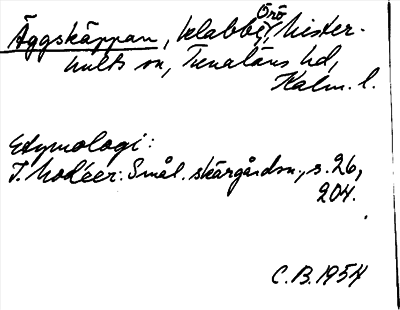 Äggskäppan, klabbe, Orö, Mister-
hults sn, Tunaläns hd,
Kalm. l.
Etymologi:
I. Modéer: Smål. skärgårdsn., s. 26,
204.
C.B. 1954